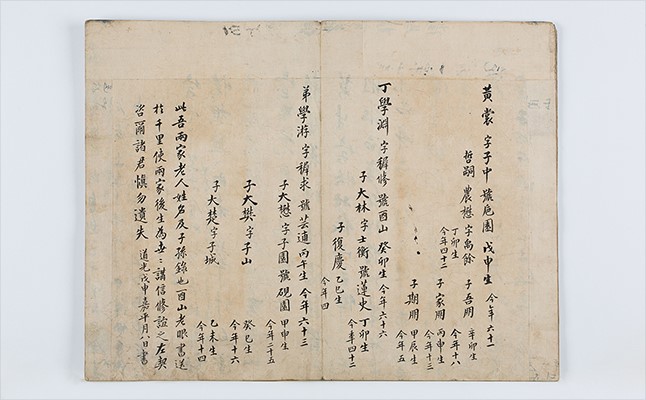 黃裳 字子中 號巵園 戊申生 今年六十一
哲嗣 農懋 字禹餘 子吾周 辛卯生
丁卯生
今年四十二
今年十八
子家周 丙申生
今年十三
子期周 甲辰生
今年五
丁學淵 字穉修 號酉山 癸卯生 今年六十六
子大林 字士衡 號蓮史 丁卯生
今年四十二
子復慶 乙巳生
今年四
弟學游 字穉求 號芸逌 丙午生 今年六十三
子大懋 字子園 號硯園 甲申生
今年二十五
子大樊 字子山 癸巳生
今年十六
子大楚 字子城 乙未生
今年十四
此吾兩家老人姓名及子孫錄也酉山老眼書送
於千里使兩家後生為世〻講信修誼之左契
咨爾諸君愼勿遺失 道光戊申嘉平月八日書